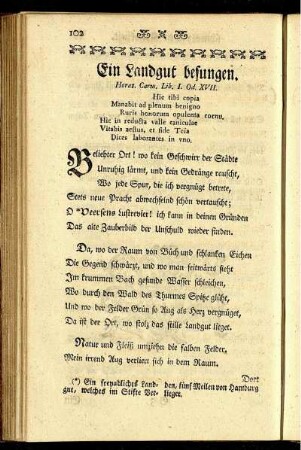 102
Ein Landgut besungen.
Horat. Carm. Lib. I. Od. XVII.
Hic tibi copia
Manabit ad plenum benigno
Ruris honorum opulenta cornu,
Hic in reducta valle caniculae
Vitabis aestus, et fide Teia
Dices laborantes in vno.
Beliebter Ort! wo kein Geschwirr der Städte
Unruhig lärmt, und kein Gedränge reuscht,
Wo jede Spur, die ich vergnügt betrete,
Stets neue Pracht abwechselnd schön vertauscht;
O Veersens Lustrevier! ich kann in deinen Gründen
Das alte Zauberbild der Unschuld wieder finden.
Da, wo der Raum von Büch und schlanken Eichen
Die Gegend schwärzt, und wo man seitwärts sieht
Im krummen Bach gesunde Wasser schleichen,
Wo durch den Wald des Thurmes Spitze glüht,
Und wo der Felder Grün so Aug als Herz vergnüget,
Da ist der Ort, wo stolz das stille Landgut lieget.
Natur und Fleiß umziehn die falben Felder,
Mein irrend Aug verliert sich in dem Raum.
Dort
(*) Ein freyadliches Land-
gut, welches im Stifte Ver-
den, fünf Meilen von Hamburg
lieget.